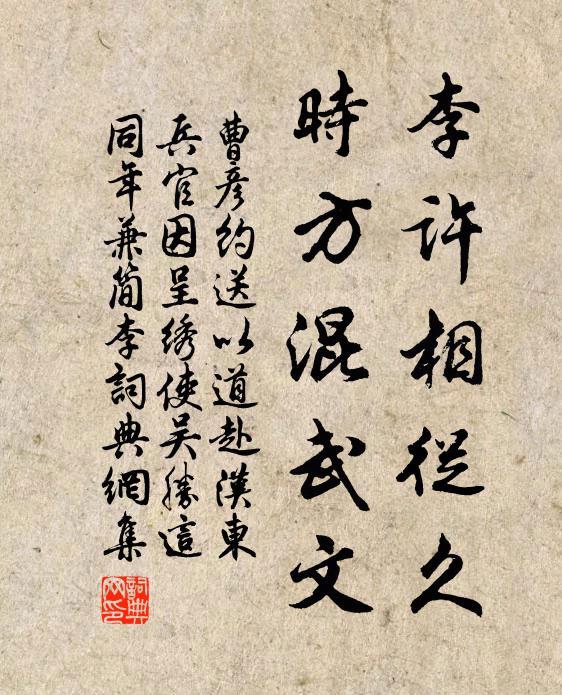 李許相從久
時方混武文
曹彥約送以道赴漢東
兵官因呈綉使吴勝這
同年兼簡李詞典網集
詞典網印